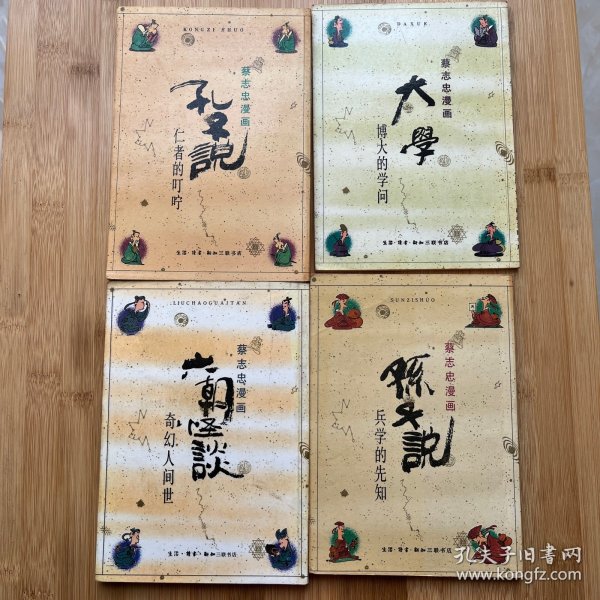 KONGZI SHUO
蔡志忠漫画
孔子說
仁者的叮咛
生活·讀書·新知三联书店
DAXUE
蔡志忠漫画
大學
博大的学问
生活·讀書·新知三联书店
LIUCHAOGUAITAN
蔡志忠漫画
六朝怪談
奇幻人间世
生活·讀書·新知三联书店
SUNZISHUO
蔡志忠漫画
孫子說
兵学的先知
生活·讀書·新知三联书店
孔夫子旧书网
www.kongfz.com